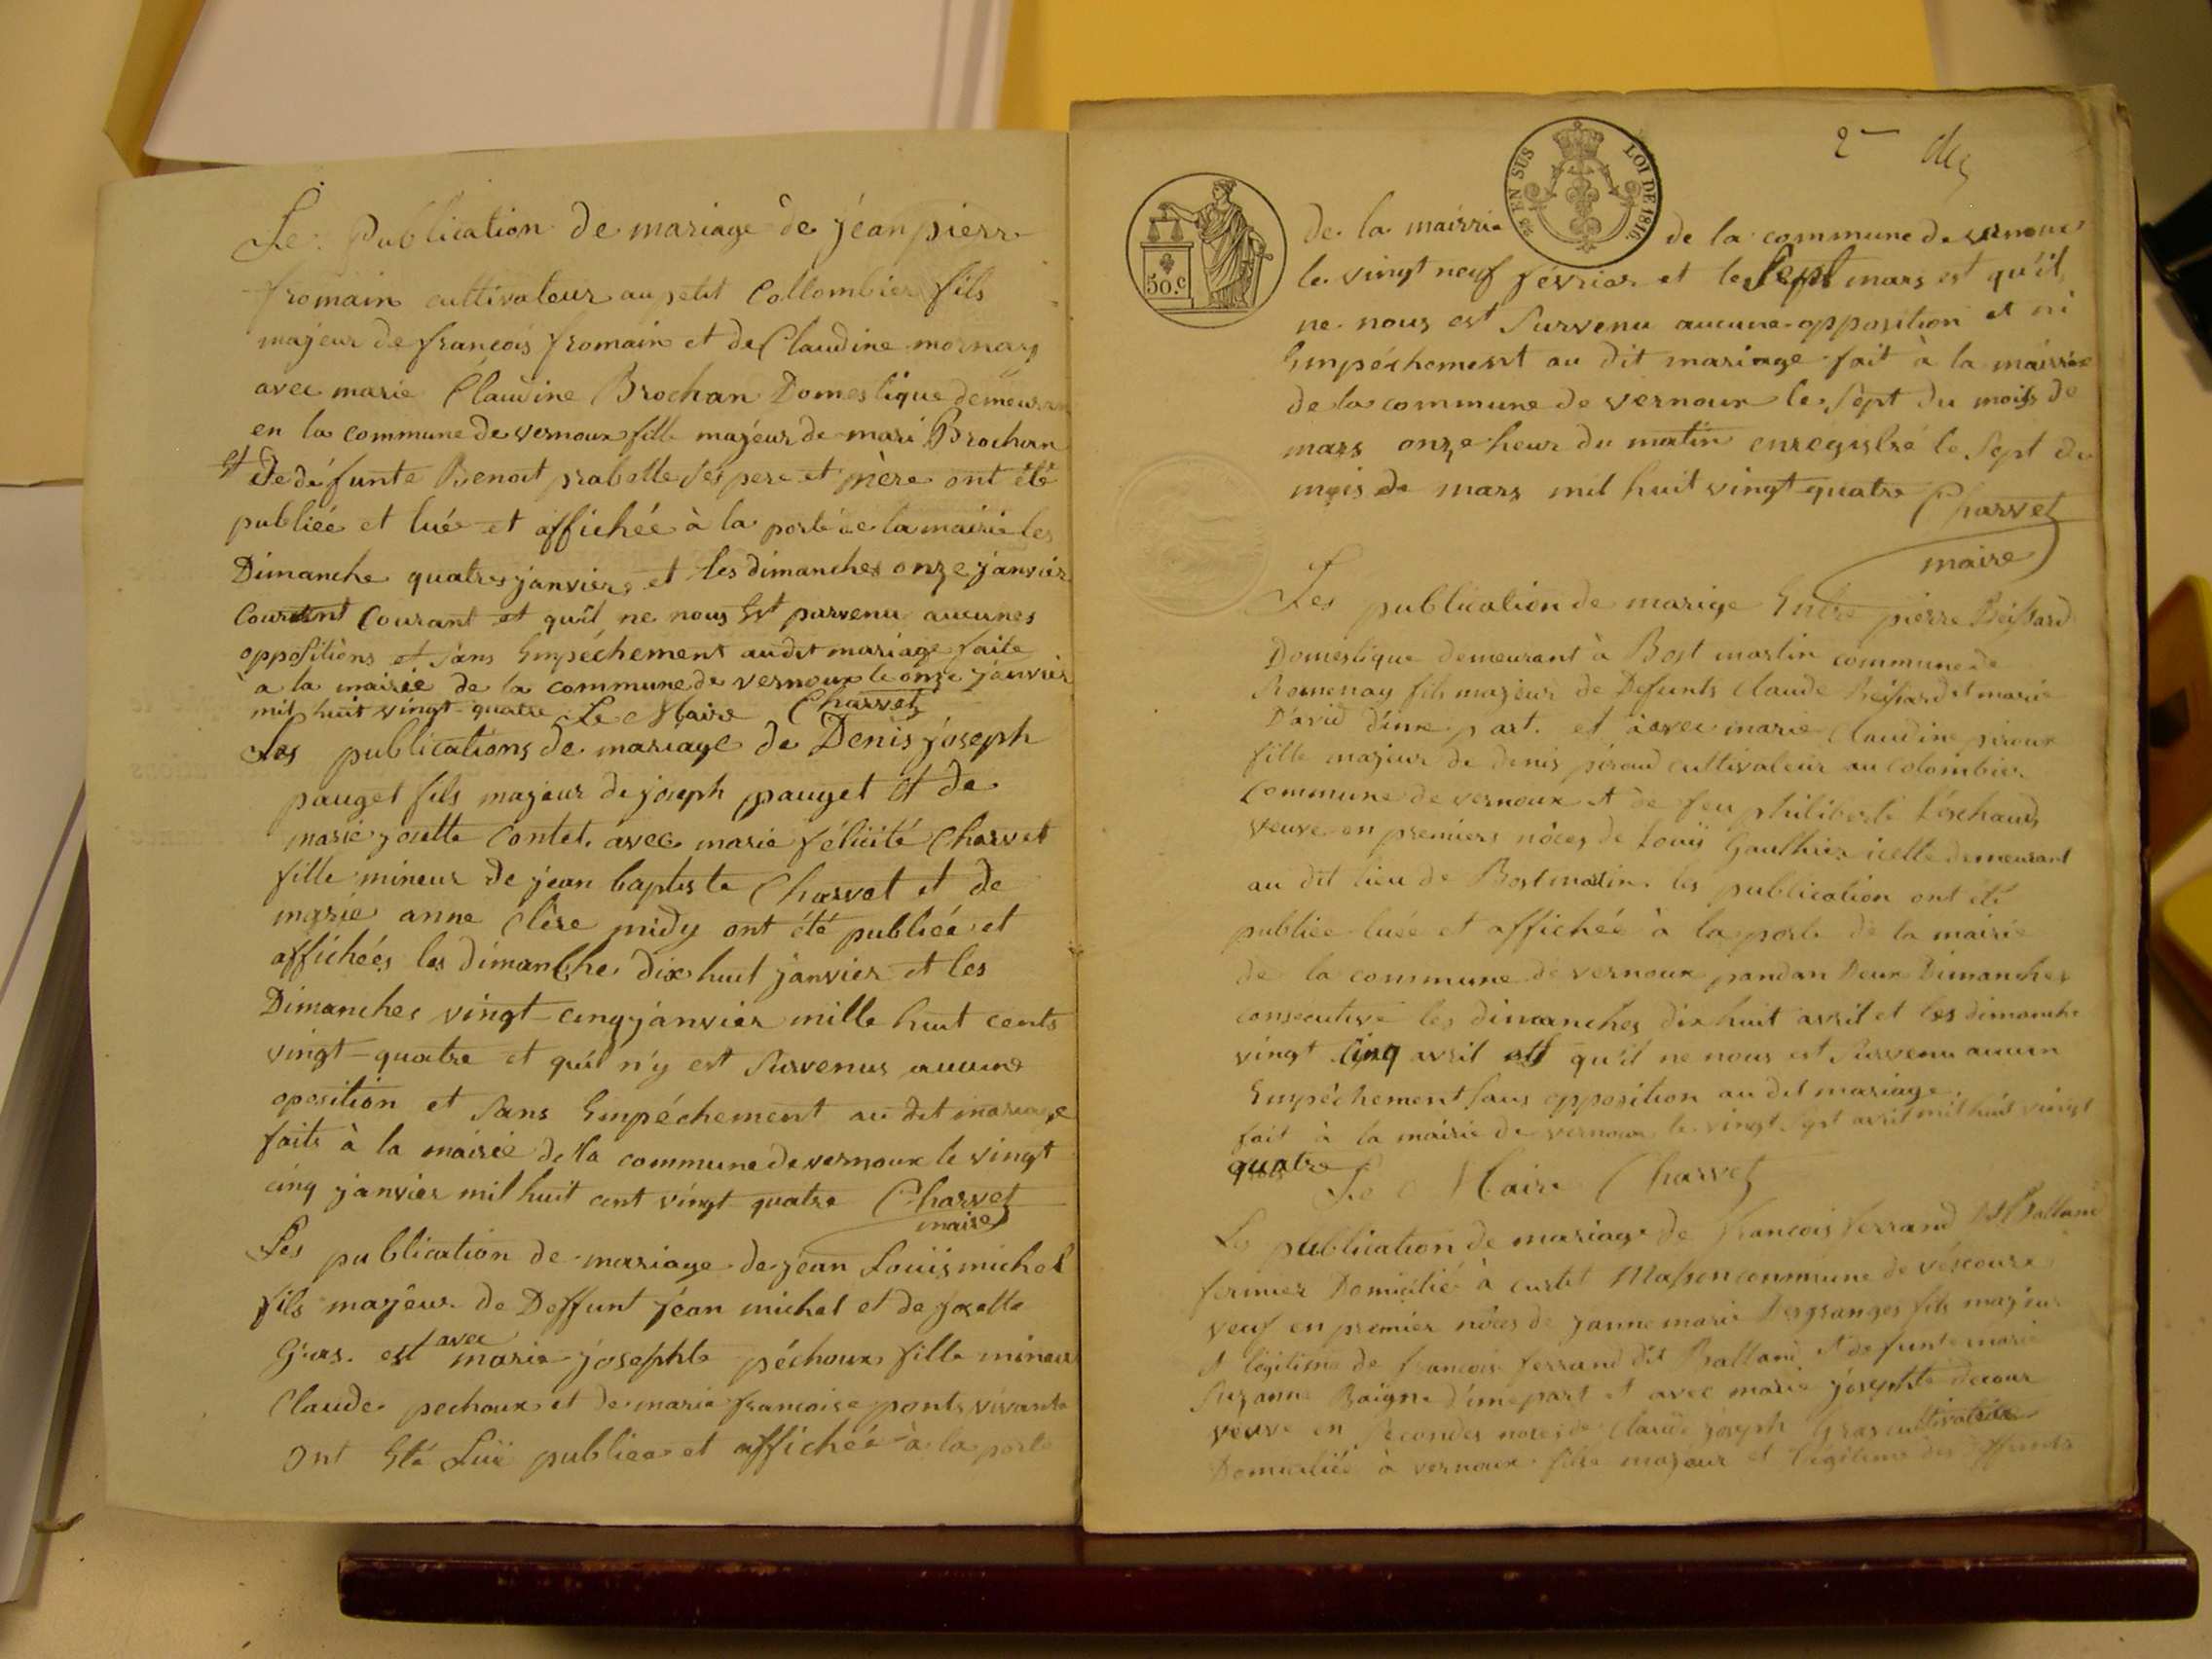 Le Publication de mariage de jéan pierr
fromain cultivateur au petit Collombier fils
majeur de françois fromain et de Claudine mornay
avec marie Claudine Brochan Domestique demeuran
en la commune de vernoux fille majeur de mari Brochan
et De défunte Benoit prabelle ses pere et mère ont été
publiéé et lué et affichéé à la porte de la mairie les
Dimanche quatres janviers et les dimanches onze janvier
Courant Courant et qu'il ne nous Est parvenu aucunes
oppositions et sans Empéchement audit mariage faite
à la mairie de la commune de vernoux le onze janvier
mil huit vingt-quatre Le Maire Charvet
Les publications de mariage de Denis joseph
pauget fils majeur de joseph pauget et de
marie josette Contet avec marie félicité Charvet
fille mineur de jean baptiste Charvet et de
marie anne Clère midy ont été publiéé et
affichéés les dimanche dix huit janvier et les
Dimanches vingt-cinq janvier mille huit cents
vingt-quatre et qu'il n'y est survenus aucune
oposition et sans Empéchement au dit mariage
faits à la mairie de la commune de vernoux le vingt
cinq janvier mil huit cent vingt quatre Charvet
maire
Les publication de mariage de jean Louis michel
fils majeur de Deffunt jéan michel et de josette
Gras. est avec marie josephte péchoux fille mineur
Claude pechoux et de marie francoise ponts vivants
ont Eté Luë publiee et affichéé à la porte
2me
50.c
EN SUS LOI DE 1816.
de la mairrie de la commune de vernoux
le vingt neuf février et le Sept mars est qu'il
ne nous est survenu aucune opposition et ni
Empéchement au dit mariage fait à la mairrie
de la commune de vernoux le sept du mois de
mars onze heur du matin enregistré le sept du
mois de mars mil huit vingt quatre Charvet
maire
Les publication de marige Entre pierre Beissard
Domestique demeurant à Bost martin commune de
Romenay fils majeur de Defunts claude Beissard et marie
David d'une part. et avec marie claudine piroux
fille majeur de denis piroud cultivateur au colombier
commune de vernoux et de feu philiberte
veuve en premiers nôces de Louis Gauthier icelle demeurant
au dit lieu de Bost martin. les publication ont été
publiee luée et affichéé à la porte de la mairie
de la commune de vernoux pandan Deux Dimanches
consécutive les dimanches dix huit avril et les dimanche
vingt cinq avril est qu'il ne nous est survenu aucun
Empêchement sans opposition au dit mariage.
fait à la mairie de vernoux le vingt sept avril mil huit vingt
quatre Le Maire Charvet
Le publication de mariage de francois ferrand dit Balland
fermier Domicilié à curtit Masson commune de véscours
veuf en premier nôces de janne marie Desgranges fils majeur
et légitime de francois ferrand dit Balland et defunte marie
suzanne Baigne d'une part et avec marie josephte decour
veuve en secondes noces de Claude joseph Gras cultivatrice
Domicilié à vernoux fille majeur et légitime des deffunts